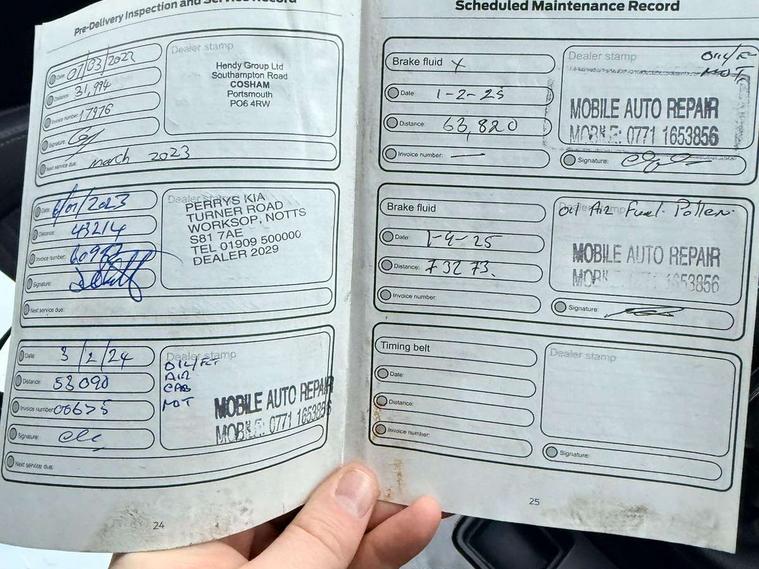 Pre-Delivery Inspection and Service Record
Date: 07/03/2022
Distance: 31,994
Invoice number: 17976
Signature:
Next service due: march 2023
Dealer stamp
Hendy Group Ltd
Southampton Road
COSHAM
Portsmouth
PO6 4RW
Date: /01/2023
Distance: 43214
Invoice number:
Signature:
Next service due:
Dealer stamp
PERRYS KIA
TURNER ROAD
WORKSOP, NOTTS
S81 7AE
TEL 01909 500000
DEALER 2029
Date: 3/2/24
Distance: 53090
Invoice number: 00675
Signature:
Next service due:
Dealer stamp
OIL/FLT
AIR
CAB
MOT
MOBILE AUTO REPAIR
MOBILE: 0771 1653856
24
Scheduled Maintenance Record
Brake fluid X
Date: 1-2-25
Distance: 63,820
Invoice number: —
Dealer stamp
OIL/
MOT
MOBILE AUTO REPAIR
MOBILE: 0771 1653856
Signature:
Brake fluid
Date: 1-9-25
Distance: 73273.
Invoice number:
Dealer stamp
Oil Air Fuel Pollen
MOBILE AUTO REPAIR
MOBILE: 0771 1653856
Signature:
Timing belt
Date:
Distance:
Invoice number:
Dealer stamp
Signature:
25